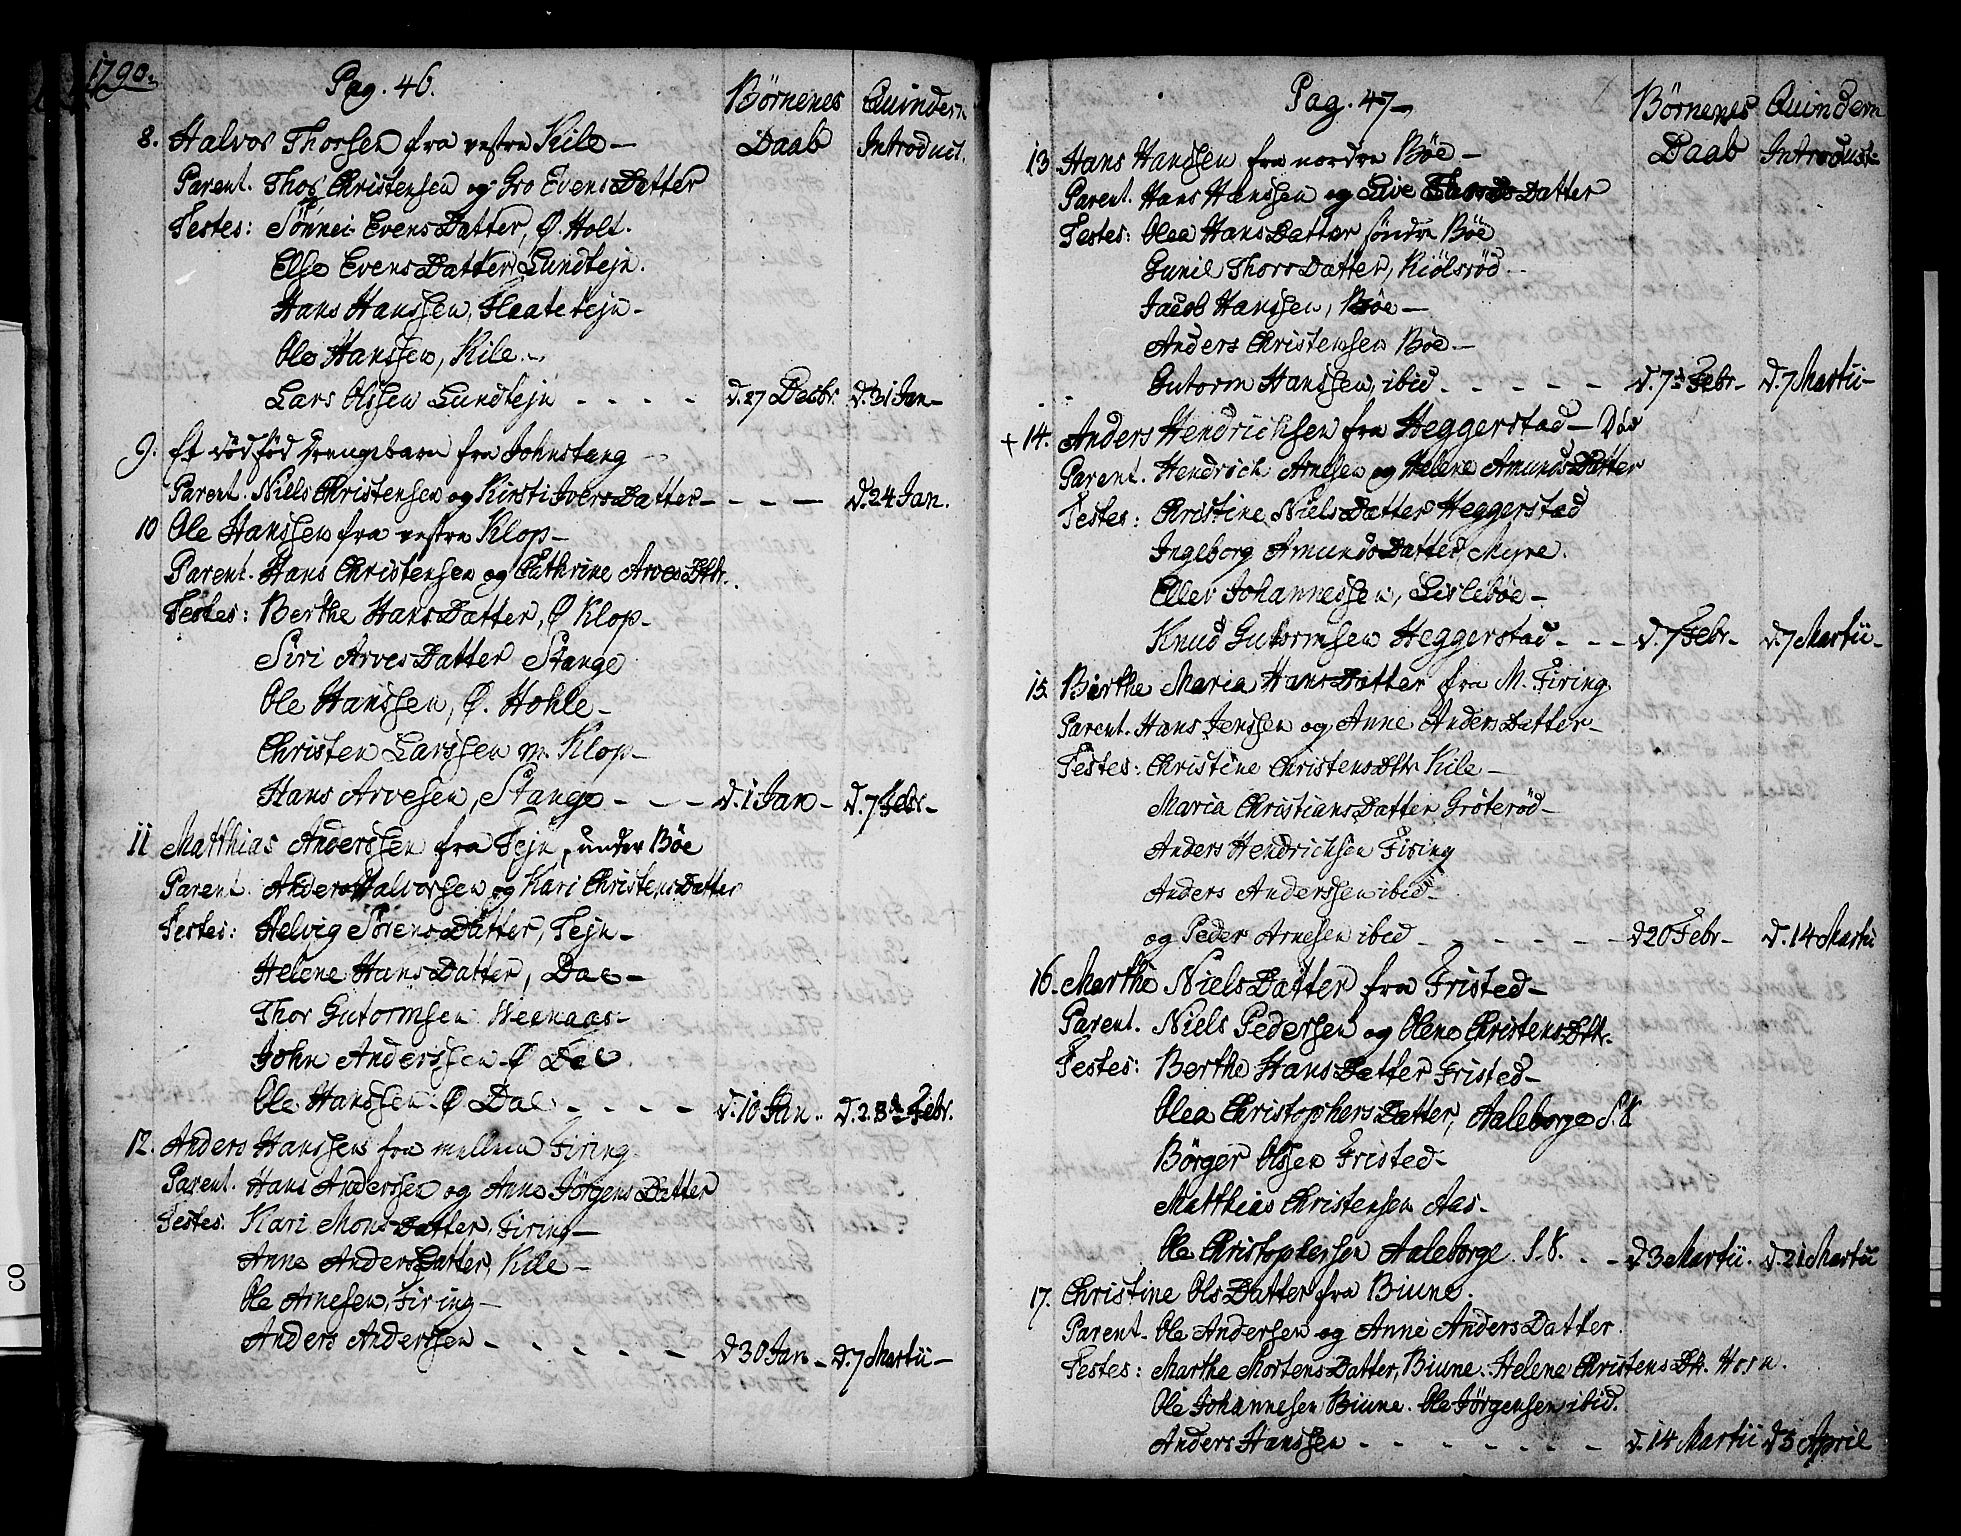 1790.
Pag. 46.
Børnenes Daab
Qvindern Introduct.
8. Halvor Thorsen fra vestre Kile —
Parent. Thor Christensen og Gro EvensDatter
Testes: Sønnei EvensDatter, Ø. Holt.
Else EvensDatter Lundtejn.
Hans Hanssen, Flaatetejn —
Ole Hanssen, Kile —
Lars Olssen Lundtejn - - - - d. 27 Decbr. d. 31 Jan —
9. Et dødfød Drengebarn fra Johnstang
Parent. Niels Christensen og Kirsti IversDatter — — — — d. 24 Jan.
10 Ole Hanssen fra vestre Klop —
Parent. Hans Christensen og Cathrine ArvesDttr.
Testes: Berthe HansDatter, Ø Klop —
Siri ArvesDatter Stange
Ole Hanssen, Ø. Hohle —
Christen Larssen m. Klop —
Hans Arvesen, Stange — — — d. 1 Jan — d. 7 Febr —
11 Matthias Anderssen fra Tejn, under Bøe
Parent. Anders Halvorssen og Kari ChristensDatter
Testes: Helvig SørensDatter, Tejn —
Helene HansDatter, Dal —
Thor Gutormsen Weenaas —
John Anderssen Ø Dal
Ole Hanssen Ø Dal - - - - d. 10 Jan. d. 28de Febr.
12. Anders Hanssen fra mellem Firing
Parent. Hans Anderssen og Anne JørgensDatter
Testes: Kari MonsDatter, Firing —
Anne AndersDatter, Kile —
Ole Arnesen, Firing —
Anders Anderssen - - - - - - d 30 Jan — d. 7 Martii —
Pag. 47 —
Børnenes Daab
Qvindern Introduct.
13. Hans Hanssen fra nordre Bøe —
Parent. Hans Hanssen og Live Datter
Testes: Olea HansDatter søndre Bøe
Gunil ThorsDatter, Kiølsrød —
Jacob Hanssen, Bøe —
Anders Christensen Bøe —
Gutorm Hanssen, ibid - - - - - d. 7de Febr — d. 7 Martii —
+ 14. Anders Hendrichsen fra Heggerstad — Død
Parent. Hendrich Arnesen og Helene AmundsDatter
Testes: Christine NielsDatter Heggerstad
Ingeborg AmundsDatter, Myre.
Ellev Johannessen, Lislebøe —
Knud Gutormsen Heggerstad - - - d. 7 Febr — d. 7 Martii —
15. Berthe Maria HansDatter fra M. Firing
Parent. Hans Jenssen og Anne AndersDatter —
Testes: Christine ChristensDttr Kile —
Maria ChristiansDatter Grøterød —
Anders Hendrichsen Firing
Anders Anderssen ibid —
og Peder Arnesen ibid - - - - - - d 20 Febr — d. 14 Martii
16. Marthe NielsDatter fra Fristed —
Parent. Niels Pedersen og Olene ChristensDttr.
Testes: Berthe HansDatter Fristed —
Olea ChristophersDatter, Aaleborge S.K
Børger Olssen Fristed —
Matthias Christensen Aas —
Ole Christophersen Aaleborge. S.K. - - d 3 Martii. d. 21 Martii
17. Christine OlsDatter fra Biune.
Parent. Ole Andersen og Anne AndersDatter.
Testes: Marthe MortensDatter, Biune. Helene ChristensDtr. Horn.
Ole Johannesen Biune. Ole Jørgensen ibid.
Anders Hanssen - - - - - - - d. 14 Martii d 5 April